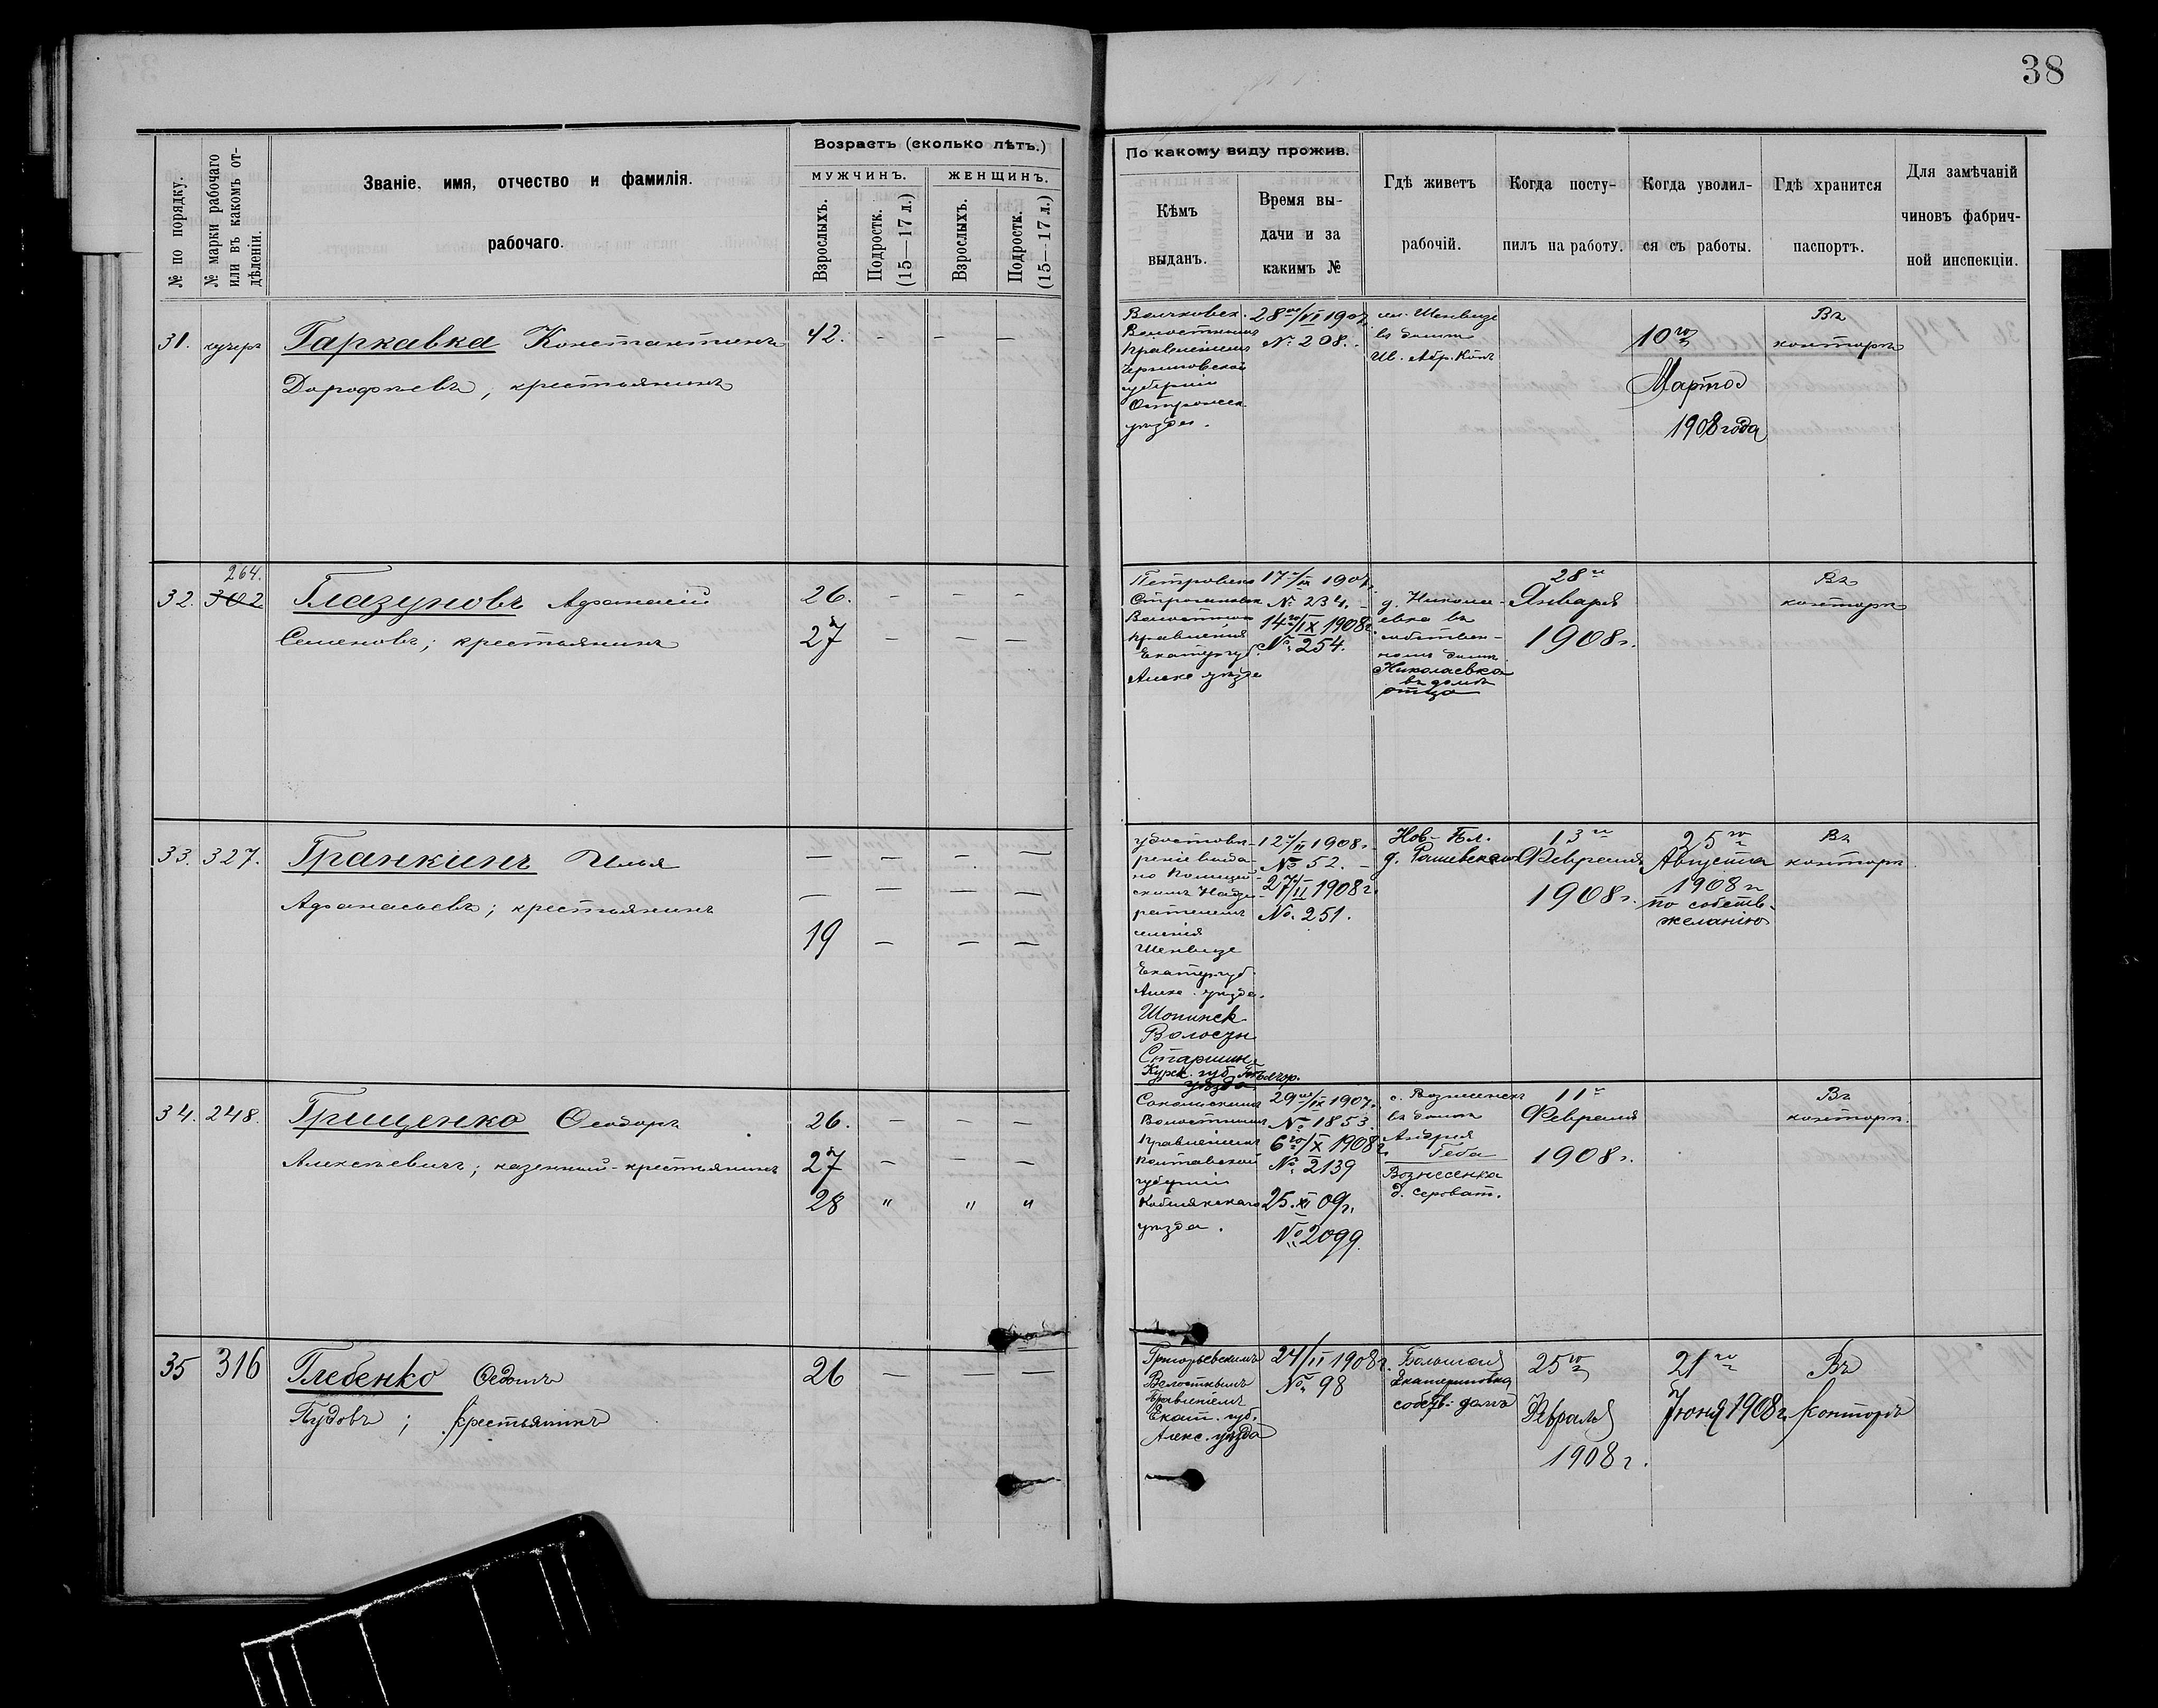 38
№ по порядку.
№ марки рабочаго или въ какомъ отдѣленіи.
Званіе, имя, отчество и фамилія
рабочаго.
Возрастъ (сколько лѣтъ.)
МУЖЧИНЪ.
ЖЕНЩИНЪ.
Взрослыхъ.
Подростк. (15—17 л.)
Взрослыхъ.
Подростк. (15—17 л.)
По какому виду прожив.
Кѣмъ
выданъ.
Время вы-
дачи и за
какимъ №
Гдѣ живетъ
рабочій.
Когда посту-
пилъ на работу.
Когда уволил-
ся съ работы.
Гдѣ хранится
паспортъ.
Для замѣчаній
чиновъ фабрич-
ной инспекціи.
31. кучеръ Гаркавка Константинъ 42. - - -
Дорофѣевъ, крестьянинъ
Волостнымъ
Правленіемъ
Черниговской
губерніи
уѣзда.
28го/VI 1907
№ 208.
Шенвизе
въ домѣ
Ив. Абр. Копъ
10го
Марта
1908 года
Въ
конторѣ
264.
32. 302 Глазуновъ Афанасій 26. - - -
Семеновъ; крестьянинъ 27 - - -
Петровско
Строгановск
Волостного
правленія
Екатер. губ.
Алекс уѣзда
17/IX 1907
№ 234.
14го/IX 1908г.
№ 254.
д. Никола-
евка въ
собствен-
номъ домѣ
Николаевка
въ домѣ
отца
28го
Января
1908г.
Въ
конторѣ
33. 327. Гранкинъ Илья — — — —
Афанасьевъ; крестьянинъ — — — —
19 — — —
удостовѣ-
реніе выда-
но Полицей-
скимъ Надзи-
рателемъ
имѣнія
Шенвизе
Екатер. губ.
Алекс. уѣзда.
Шопинск
Волостн
Старшин.
Курск. губ. Бѣлгор.
уѣзда
12/II 1908г.
№ 52. —
27/II 1908г.
№ 251.
Нов-
13го
Февраля
1908г.
25го
Августа
1908г
по собств.
желанію
Въ
конторѣ
34. 248. Грищенко Феодоръ 26. — — —
Алексѣевичъ; казенный-крестьянинъ 27 — — —
28 " " "
Сокольскимъ
Волостнымъ
Правленіемъ
Полтавской
губерніи
Кобелякскаго
уѣзда.
29го/IX 1907г.
№ 1853.
6го/X 1908г.
№ 2139
25.XI 09г.
№ 2099.
с. Вознесенск
въ домѣ
Андрея
Геба
Вознесенка
д. Сероват.
11го
Февраля
1908г.
Въ
конторѣ.
35 316 Глебенко Федотъ 26 — — —
Пудовъ; крестьянинъ
Григорьевскимъ
Волостнымъ
Правленіемъ
Екат. губ.
Алекс. уѣзда
24/II 1908г.
№ 98
Большая
Екатериновка,
собств. домъ
25го
Февраля
1908г.
21го
Іюня 1908г
Въ
конторѣ